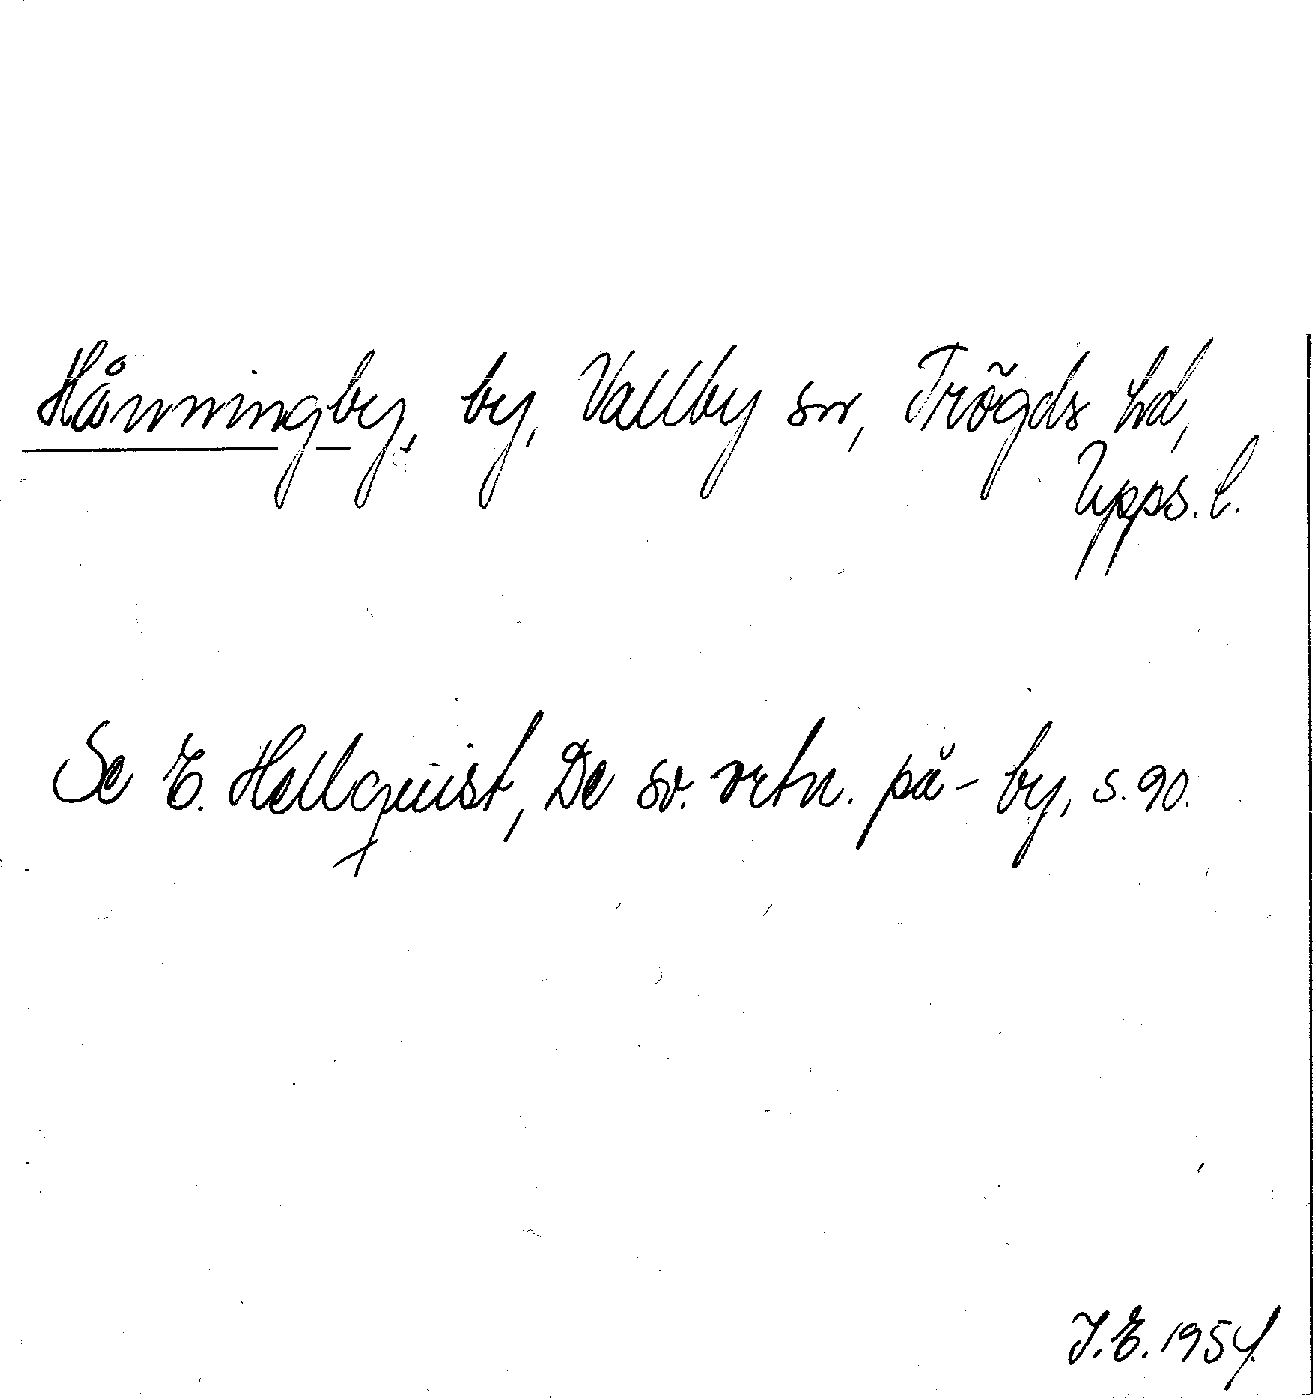 Hånningby, by, Vallby sn, Trögds hd,
Upps. l.
Se E. Hellquist, De sv. ortn. på - by, s. 90.
J. E. 1954